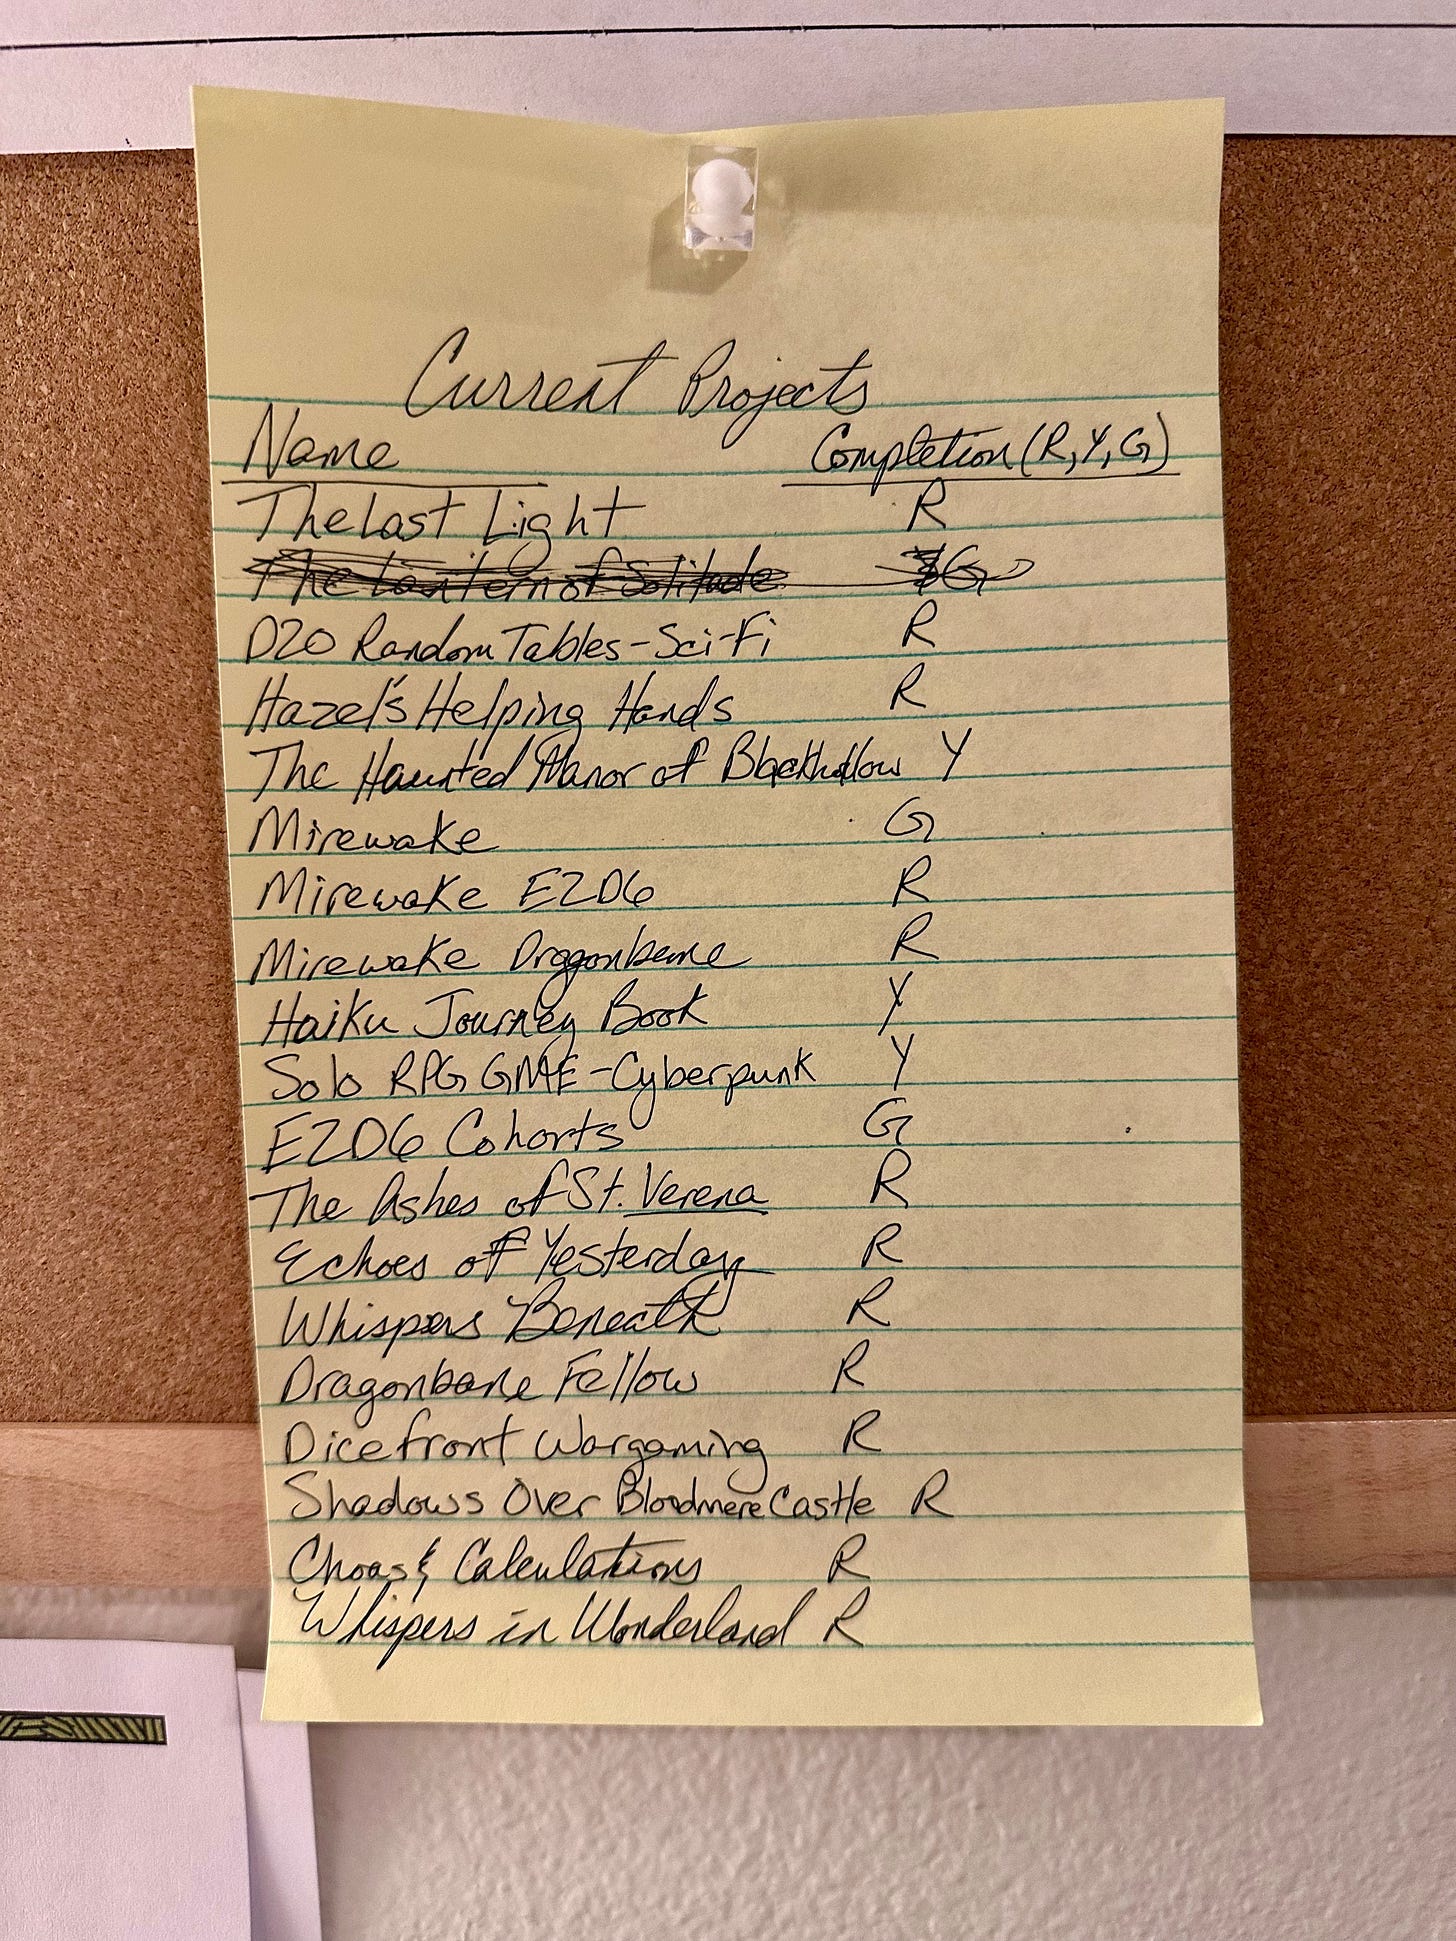 Current Projects
Name Completion (R, Y, G)
The Last Light R
The Lantern of Solitude G
D20 Random Tables - Sci-Fi R
Hazel's Helping Hands R
The Haunted Manor of Blackhollow Y
Mirewake G
Mirewake EZD6 R
Mirewake Dragonbane R
Haiku Journey Book Y
Solo RPG GME - Cyberpunk Y
EZD6 Cohorts G
The Ashes of St. Verena R
Echoes of Yesterday R
Whispers Beneath R
Dragonbane Fellow R
Dicefront Wargaming R
Shadows Over Bloodmere Castle R
Choas & Calculations R
Whispers in Wonderland R